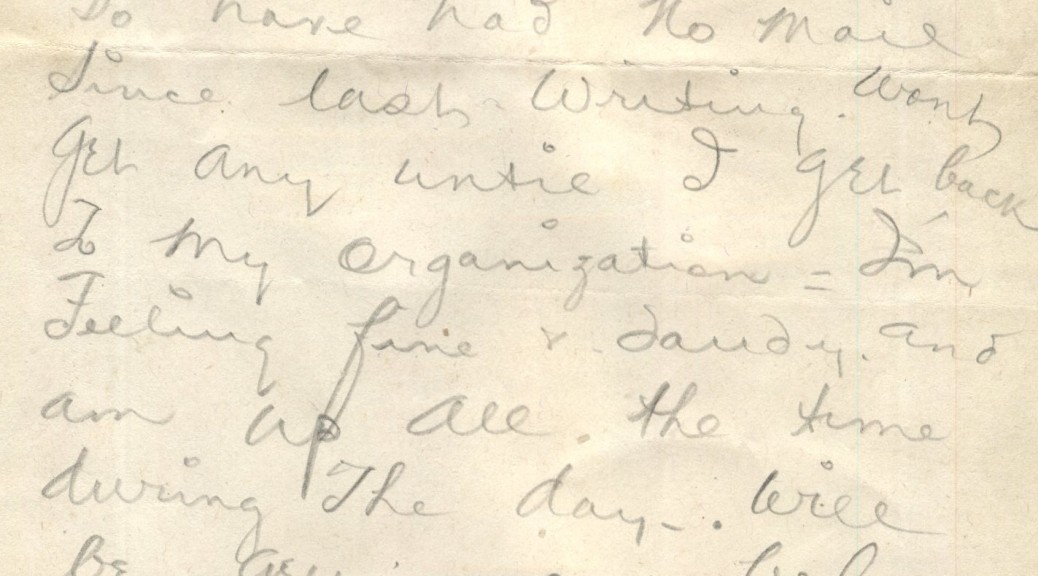 To have had No mail
Since last Writing. Wont
Get any until I get back
To My Organization = I'm
Feeling fine & dandy. and
am up all. the time
during The day-. Will
be